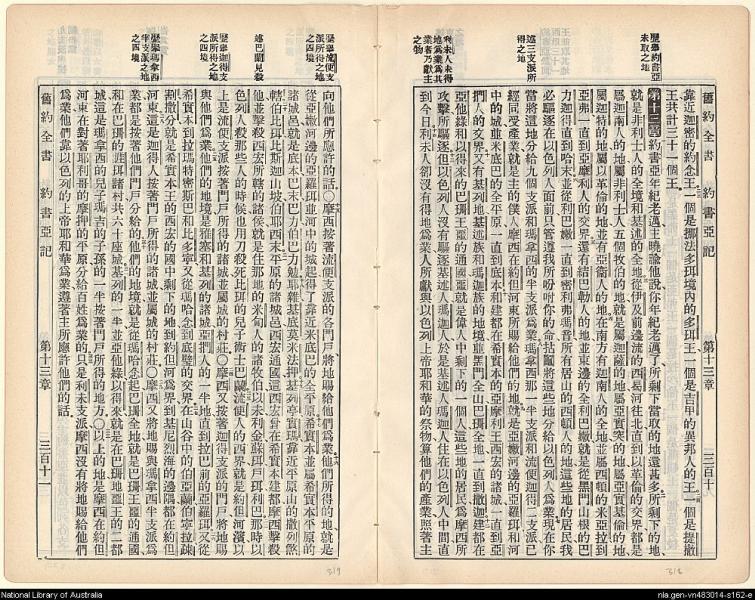 歷舉約書亞
未取之地
述三支派所
得之地
利未人未得
地為業為其
業者乃獻主
之物
舊約全書 約書亞記 第十三章 三百十
靠近迦密的約念王一個是挪法多珥境內的多珥王一個是吉甲的異邦人的王一個是提撒
王共計三十一個王
第十三章約書亞年紀老邁主曉諭他說你年紀老邁了所剩下當取的地還甚多所剩下的地
就是非利士人的全境和基述的全地從伊及前邊流的西曷河往北直到以革倫的交界都是
屬迦南人的地屬非利士人五個牧伯的地就是屬迦薩的地屬亞實突的地屬亞實基倫的地
屬迦特的地屬以革倫的地並有亞衛人的地在南方有迦南人的全地並屬西頓的米亞拉到
亞弗一直到亞摩利人的交界還有結巴勒人的地並東邊的全利巴嫩就是從黑門山根的巴
力迦得直到哈末並從利巴嫩一直到密利弗瑪音所有居山的西頓人的地這些地的居民我
必驅逐在以色列人面前只管遵我所吩咐你的命拈鬮將這些地分給以色列人為業現在你
當將這地分給九個支派和瑪拿西的半支派為業瑪拿西那一半支派和流便迦得二支派已
經同受產業就是主的僕人摩西在約但河東所賜給他們的地就是亞嫩河邊的亞羅珥和河
中的城並米底巴的全平原一直到底本和建都在希實本的亞摩利王西宏的諸城一直到亞
捫人的交界又有基列地基述族和瑪迦族的地境並黑門全山巴珊全地一直到撒迦建都在
亞他綠和以得來的巴珊王噩的通國噩就是偉人中剩下的一個人這些地的居民為摩西所
攻擊所驅逐但以色列人沒有驅逐基述人瑪迦人於是基述人瑪迦人住在以色列人中間直
到今日利未人卻沒有得地為業人所獻與以色列上帝耶和華的祭物算他們的產業照著主
318
歷舉流便支
派所得之地
之四境
述巴蘭見殺
歷舉迦得支
派所得之地
之四境
歷舉瑪拿西
半支派之地
之四境
向他們所應許的話〇摩西按著流便支派的各門戶將地賜給他們為業他們所得的地就是
從亞嫩河邊的亞羅珥並河中的城起得了靠近米底巴的全平原希實本並屬希實本平原的
諸城邑就是底本巴末巴力伯巴力勉耶雜基底莫米法押基列亭實瑪靠近平原山的撒列煞
轄伯比珥比斯迦山坡伯耶西末平原的諸城邑西宏通國這西宏曾在希實本建都摩西擊殺
他並擊殺西宏所轄的諸侯就是住那地的米甸人的諸牧伯以未利金蘇珥戶珥利巴那時以
色列人殺那些人的時候也用刀殺死比珥的兒子術士巴蘭流便人的西界就是約但河濱以
上是流便支派按著門戶所得的諸城並屬城的村莊〇摩西又按著迦得支派的門戶將地賜
與他們為業他們的地境是雅塞和基列的諸城亞捫人的一半地直到拉巴前的亞羅珥又從
希實本到拉瑪特密斯巴和比多寧又從瑪哈念到底璧的交界在山谷中的伯亞蘭伯寧拉疎
割撒分就是希實本王的西宏的國中剩下的地到約但河為界到基尼烈海的邊隅都在約但
河東這是迦得人按著門戶所得的諸城並屬城的村莊〇摩西又將地賜與瑪拿西半支派為
業都是按著他們門戶分給的他們的地境就是從瑪哈念起巴珊全地就是巴珊王噩的通國
和在巴珊的睚珥諸村共六十座城基列的一半並亞他綠以得來就是在巴珊地噩王的二都
城這是瑪拿西的兒子瑪吉的子孫的一半按著門戶所得的地方〇以上的地是摩西在約但
河東在對著耶利哥的摩押的平原分給百姓為業的只是利未支派摩西沒有將地賜給他們
為業他們靠以色列的上帝耶和華為業遵著主所應許他們的話
舊約全書 約書亞記 第十三章 三百十一
319
National Library of Australia
nla.gen-vn483014-s162-e